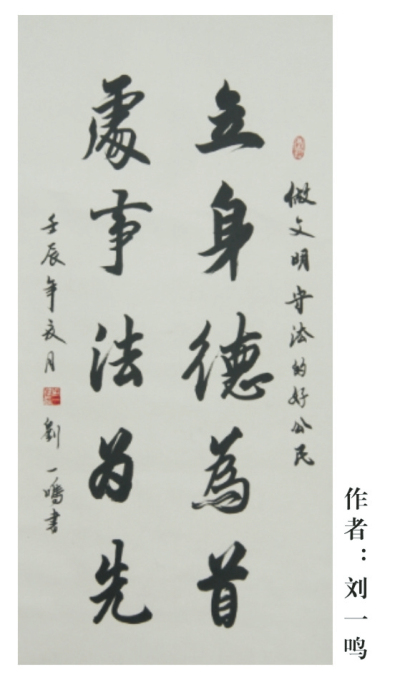 做文明守法的好公民
立身德為首
處事法为先
壬辰年夏月
劉一鳴書
作者：刘一鸣